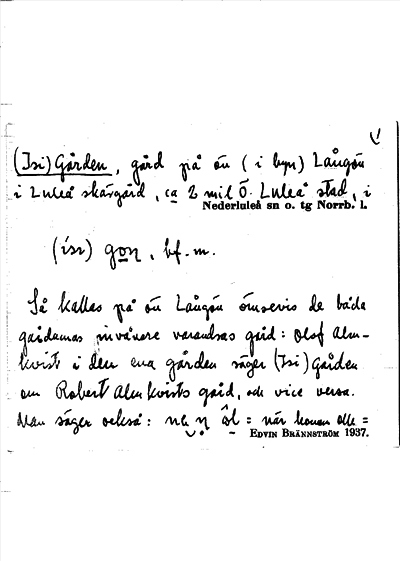 (Isi) Gården, gård på ön (i byn) Långön
i Luleå skärgård, ca 2 mil Ö. Luleå stad, i
Nederluleå sn o. tg Norrb. l.
(ísı) gon, bf. m.
Så kallas på ön Långön ömsevis de båda
gårdarnas invånare varandras gård: Olof Alm-
kvist i den ena gården säger (Isi) Gården
om Robert Almkvists gård, och vice versa.
Man säger också: = när honom Olle =
EDVIN BRÄNNSTRÖM 1937.